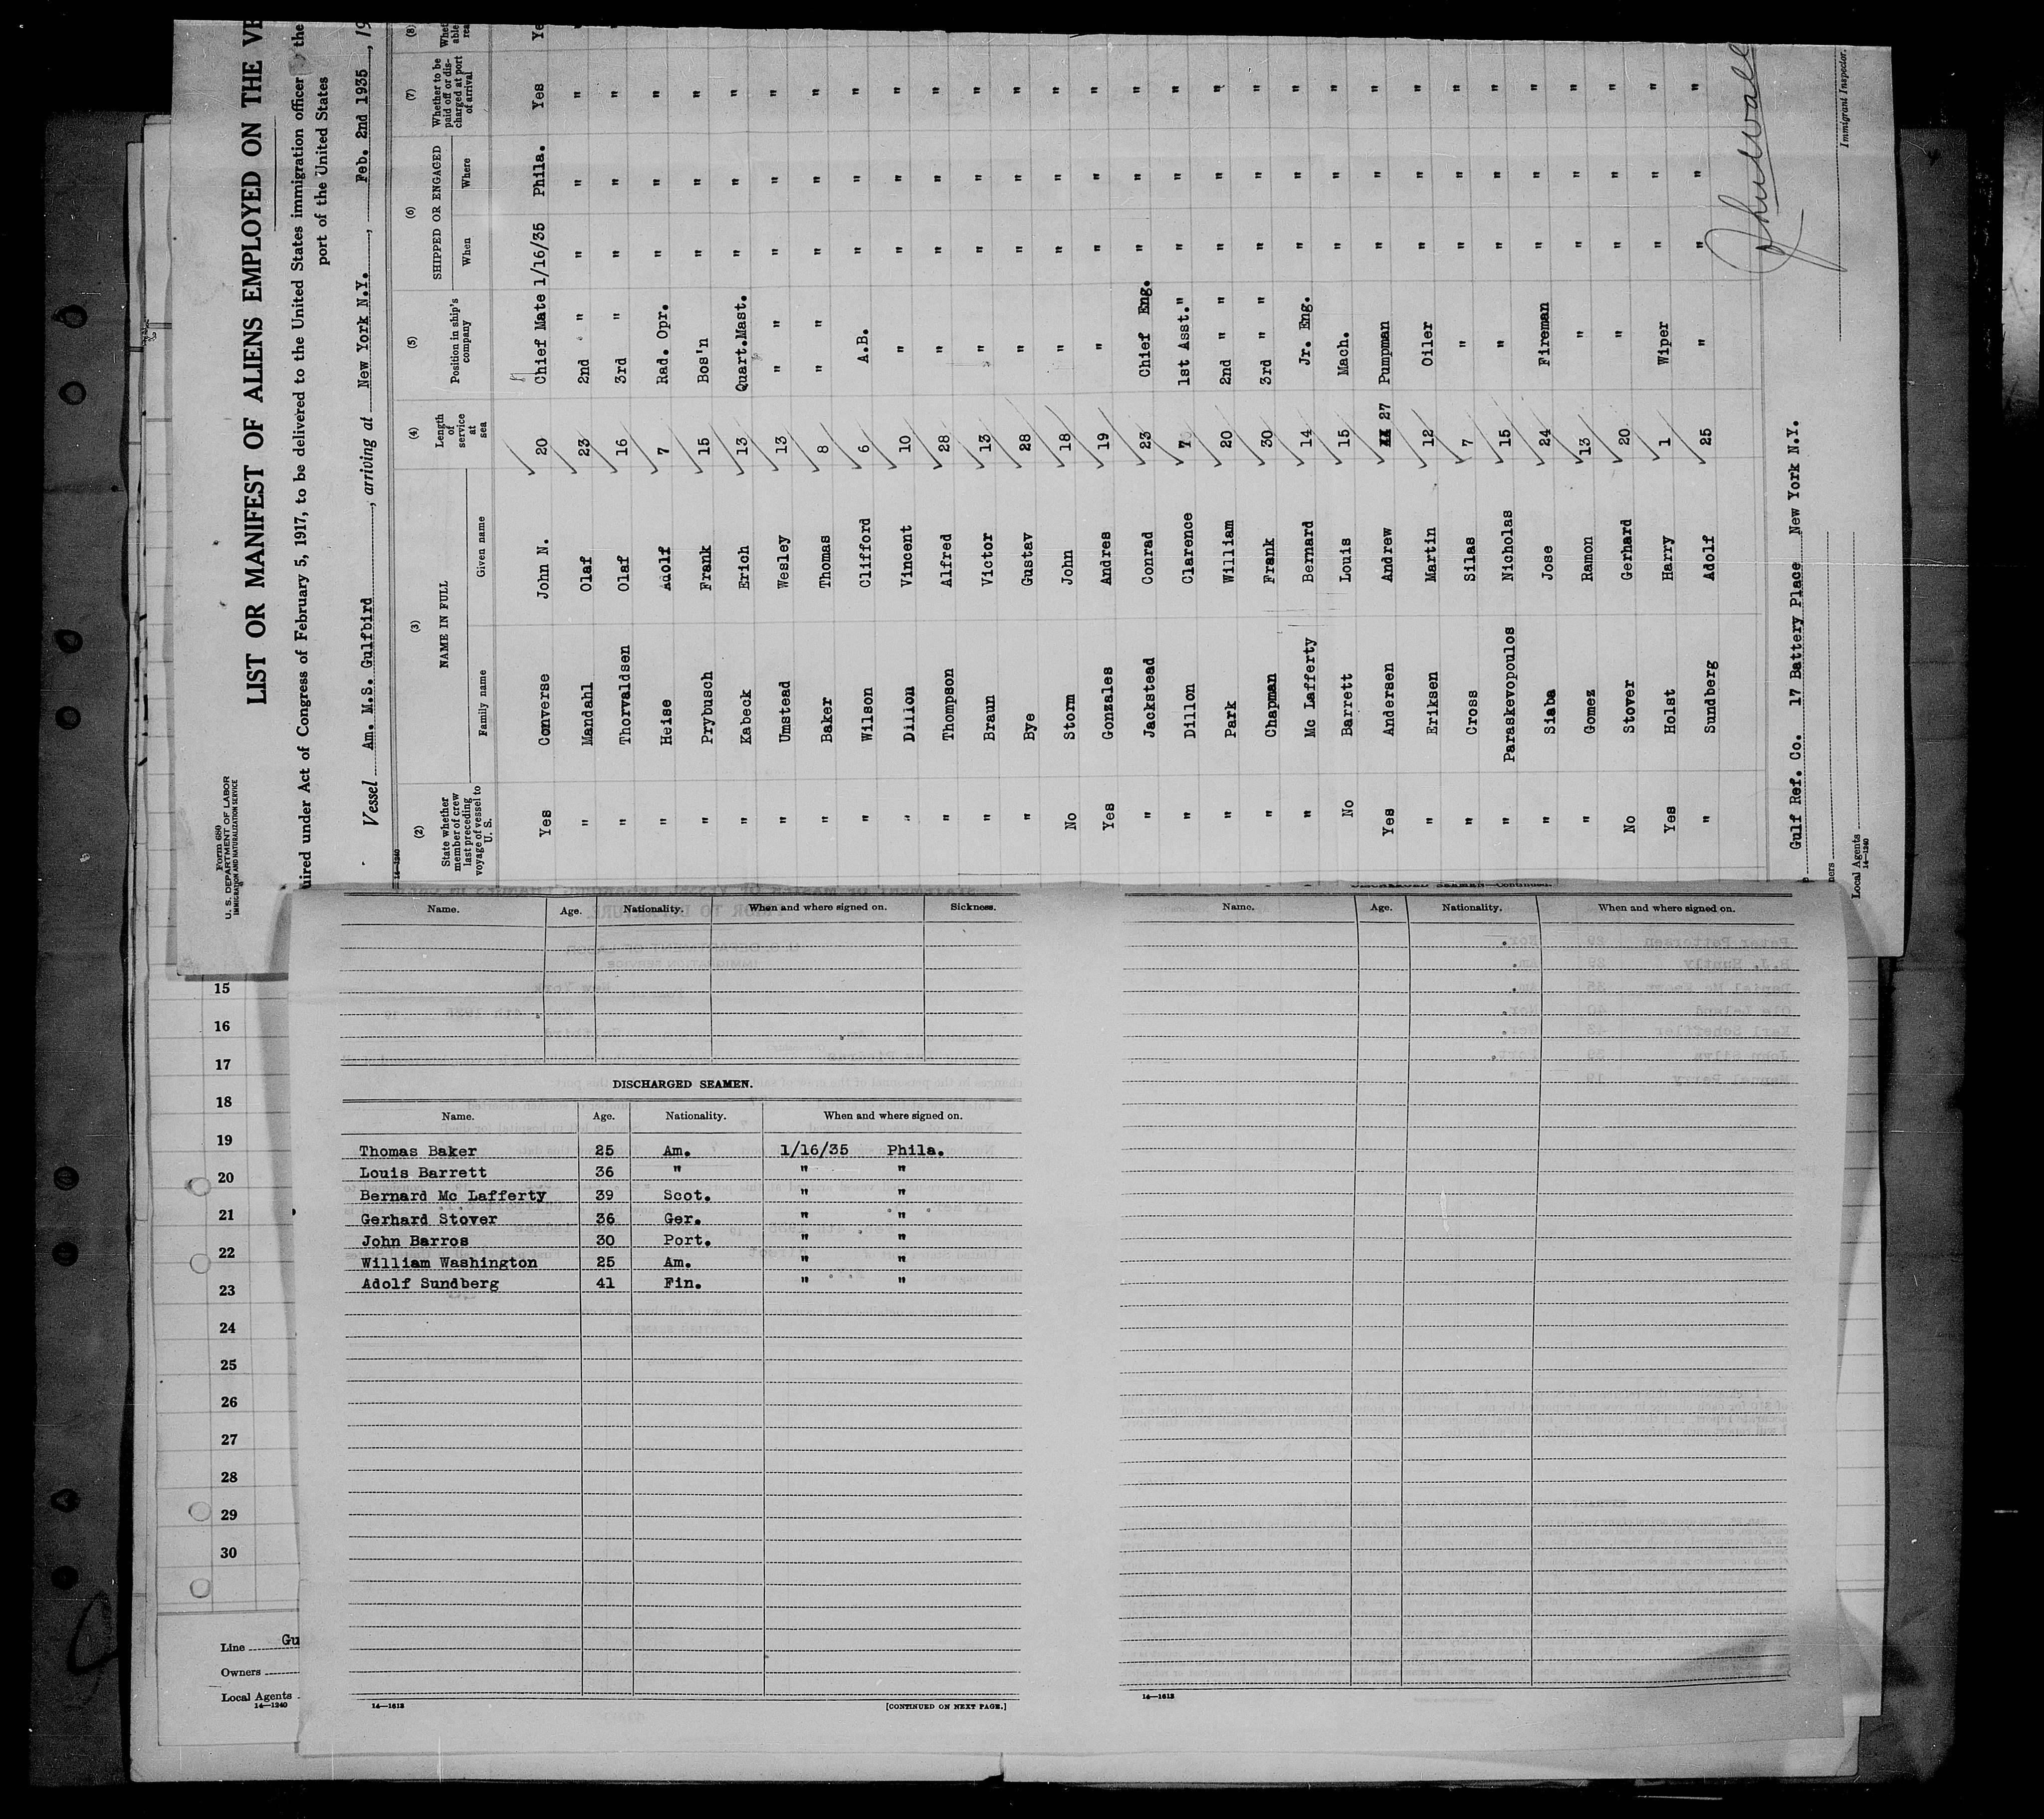 Form 680
U. S. DEPARTMENT OF LABOR
IMMIGRATION AND NATURALIZATION SERVICE
LIST OR MANIFEST OF ALIENS EMPLOYED ON THE
uired under Act of Congress of February 5, 1917, to be delivered to the United States immigration officer the
port of the United States
Vessel Am. M.S. Gulfbird, arriving at New York N.Y., Feb. 2nd 1935, 19
(2) (3) (4) (5) (6) (7) (8)
State whether member of crew last preceding voyage of vessel to U. S.
NAME IN FULL
Family name Given name
Length of service at sea
Position in ship's company
SHIPPED OR ENGAGED
When Where
Whether to be paid off or discharged at port of arrival
Yes Converse John N. 20 Chief Mate 1/16/35 Phila. Yes
" Mandahl Olaf 23 2nd " " " "
" Thorvaldsen Olaf 16 3rd " " " "
" Heise Adolf 7 Rad. Opr. " " "
" Prybusch Frank 15 Bos'n " " "
" Kabeck Erich 13 Quart.Mast. " " "
" Umstead Wesley 13 " " " " "
" Baker Thomas 8 " " " " "
" Wilson Clifford 6 A.B. " " "
" Dillon Vincent 10 " " " "
" Thompson Alfred 28 " " " "
" Braun Victor 13 " " " "
" Bye Gustav 28 " " " "
No Storm John 18 " " " "
Yes Gonzales Andres 19 " " " "
" Jackstead Conrad 23 Chief Eng. " " "
" Dillon Clarence 7 1st Asst." " " "
" Park William 20 2nd " " " " "
" Chapman Frank 30 3rd " " " " "
" Mc Lafferty Bernard 14 Jr. Eng. " " "
No Barrett Louis 15 Mach. " " "
Yes Andersen Andrew 27 Pumpman " " "
" Eriksen Martin 12 Oiler " " "
" Cross Silas 7 " " " "
" Paraskevopoulos Nicholas 15 " " " "
" Siaba Jose 24 Fireman " " "
" Gomez Ramon 13 " " " "
No Stover Gerhard 20 " " " "
Yes Holst Harry 1 Wiper " " "
" Sundberg Adolf 25 " " " "
Gulf Ref. Co. 17 Battery Place New York N.Y.
ners
Local Agents
14—1240
Immigrant Inspector.
Name. Age. Nationality. When and where signed on. Sickness.
DISCHARGED SEAMEN.
Name. Age. Nationality. When and where signed on.
Thomas Baker 25 Am. 1/16/35 Phila.
Louis Barrett 36 " " "
Bernard Mc Lafferty 39 Scot. " "
Gerhard Stover 36 Ger. " "
John Barros 30 Port. " "
William Washington 25 Am. " "
Adolf Sundberg 41 Fin. " "
14—1613
[CONTINUED ON NEXT PAGE.]
DISCHARGED SEAMEN—Continued.
Name. Age. Nationality. When and where signed on.
14—1613
15
16
17
18
19
20
21
22
23
24
25
26
27
28
29
30
Line Gu
Owners
Local Agents
14—1240